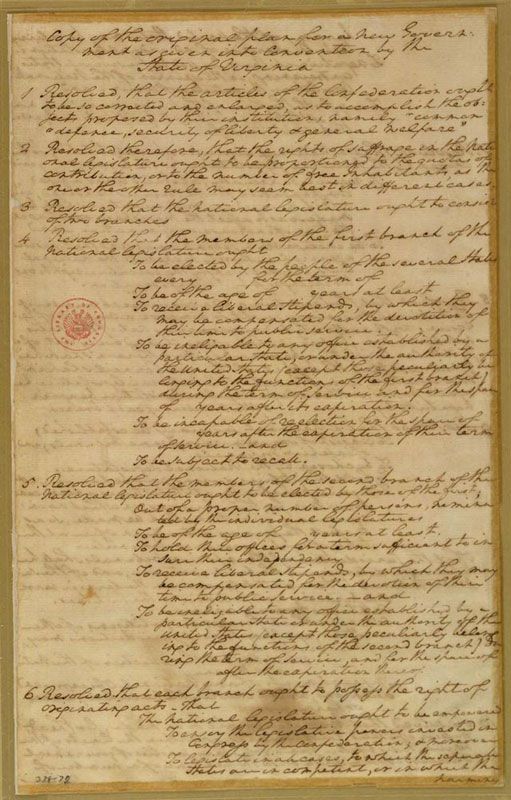 Copy of the original plan for a new Govern-
ment as given into Convention by the
State of Virginia
1 Resolved, that the articles of the Confederation ought
to be so corrected and enlarged, as to accomplish the ob-
jects proposed by their institution, namely "common
"defence, security of liberty & general welfare"
2 Resolved therefore, that the rights of suffrage in the Nati
onal legislature ought to be proportioned to the quotas of
contribution, or to the number of free Inhabitants, as the
one or the other rule may seem best in different cases.
3 Resolved that the national legislature ought to consist
of two branches
4 Resolved that the members of the first branch of the
national legislature ought
To be elected by the people of the several States
every for the term of
To be of the age of years at least
To receive liberal stipends, by which they
may be compensated for the devotion of
their time to public service.
To be ineligible to any office established by a
particular State, or under the authority of
the United States (except those peculiarly be
longing to the functions of the first branch)
during the term of service and for the space
of years after its expiration.
To be incapable of reelection for the space of
years after the expiration of their term
of service. and
To be subject to recall.
5. Resolved that the members of the second branch of the
national legislature ought to be elected by those of the first,
Out of a proper number of persons, nomina
ted by the individual legislatures
To be of the age of years at least
To hold their offices for a term sufficient to in
sure their independency
To receive liberal stipends, by which they may
be compensated for the devotion of their
time to public service. and
To be ineligible to any office established by a
particular State or under the authority of the
United States, (except those peculiarly belong
ing to the functions of the second branch) du
ring the term of service, and for the space of
after the expiration thereof.
6. Resolved that each branch ought to possess the right of
originating acts - that
The national legislature ought to be empowered
To enjoy the legislative powers invested in
Congress by the Confederation; & moreover
To legislate in all cases, to which the separate
States are incompetent, or in which the
harmony